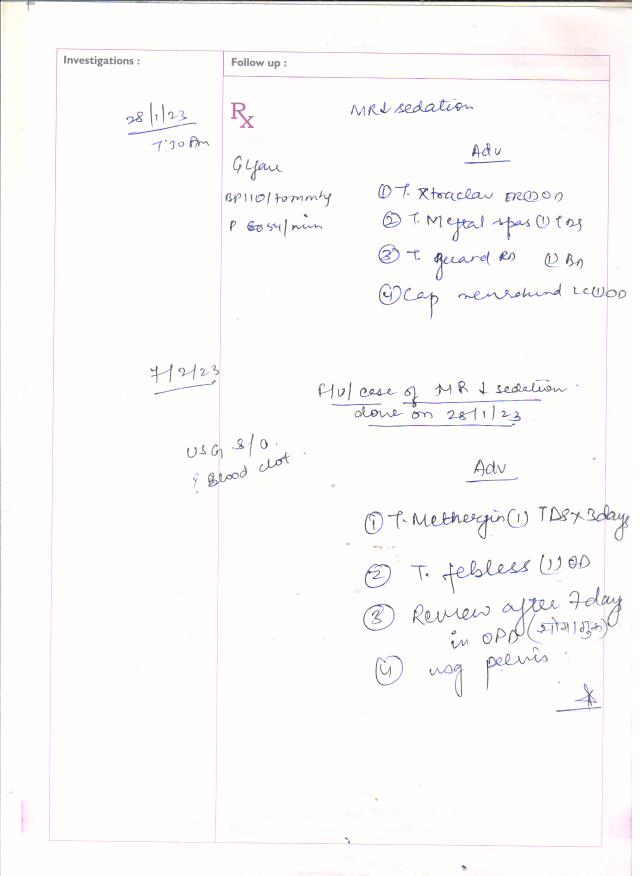 Investigations :
Follow up :
28/1/23
7:30 Am
Rx
MR↓ sedation
Adv
BP 110/70mmhg
P 84/min
① T. Xtraclav (1) OD
② T. Meftal spas (1) TDS
③ T. guard RD (1) BD
④ Cap neurokind LC (1) OD
7/2/23
F/U/case of MR ↓ sedation
done on 28/1/23
USG S/O
? Blood clot
Adv
① T. Methergin (1) TDS x 3days
② T. febless (1) OD
③ Review after 7day
in OPD (सोम/गुरु)
④ usg pelvis